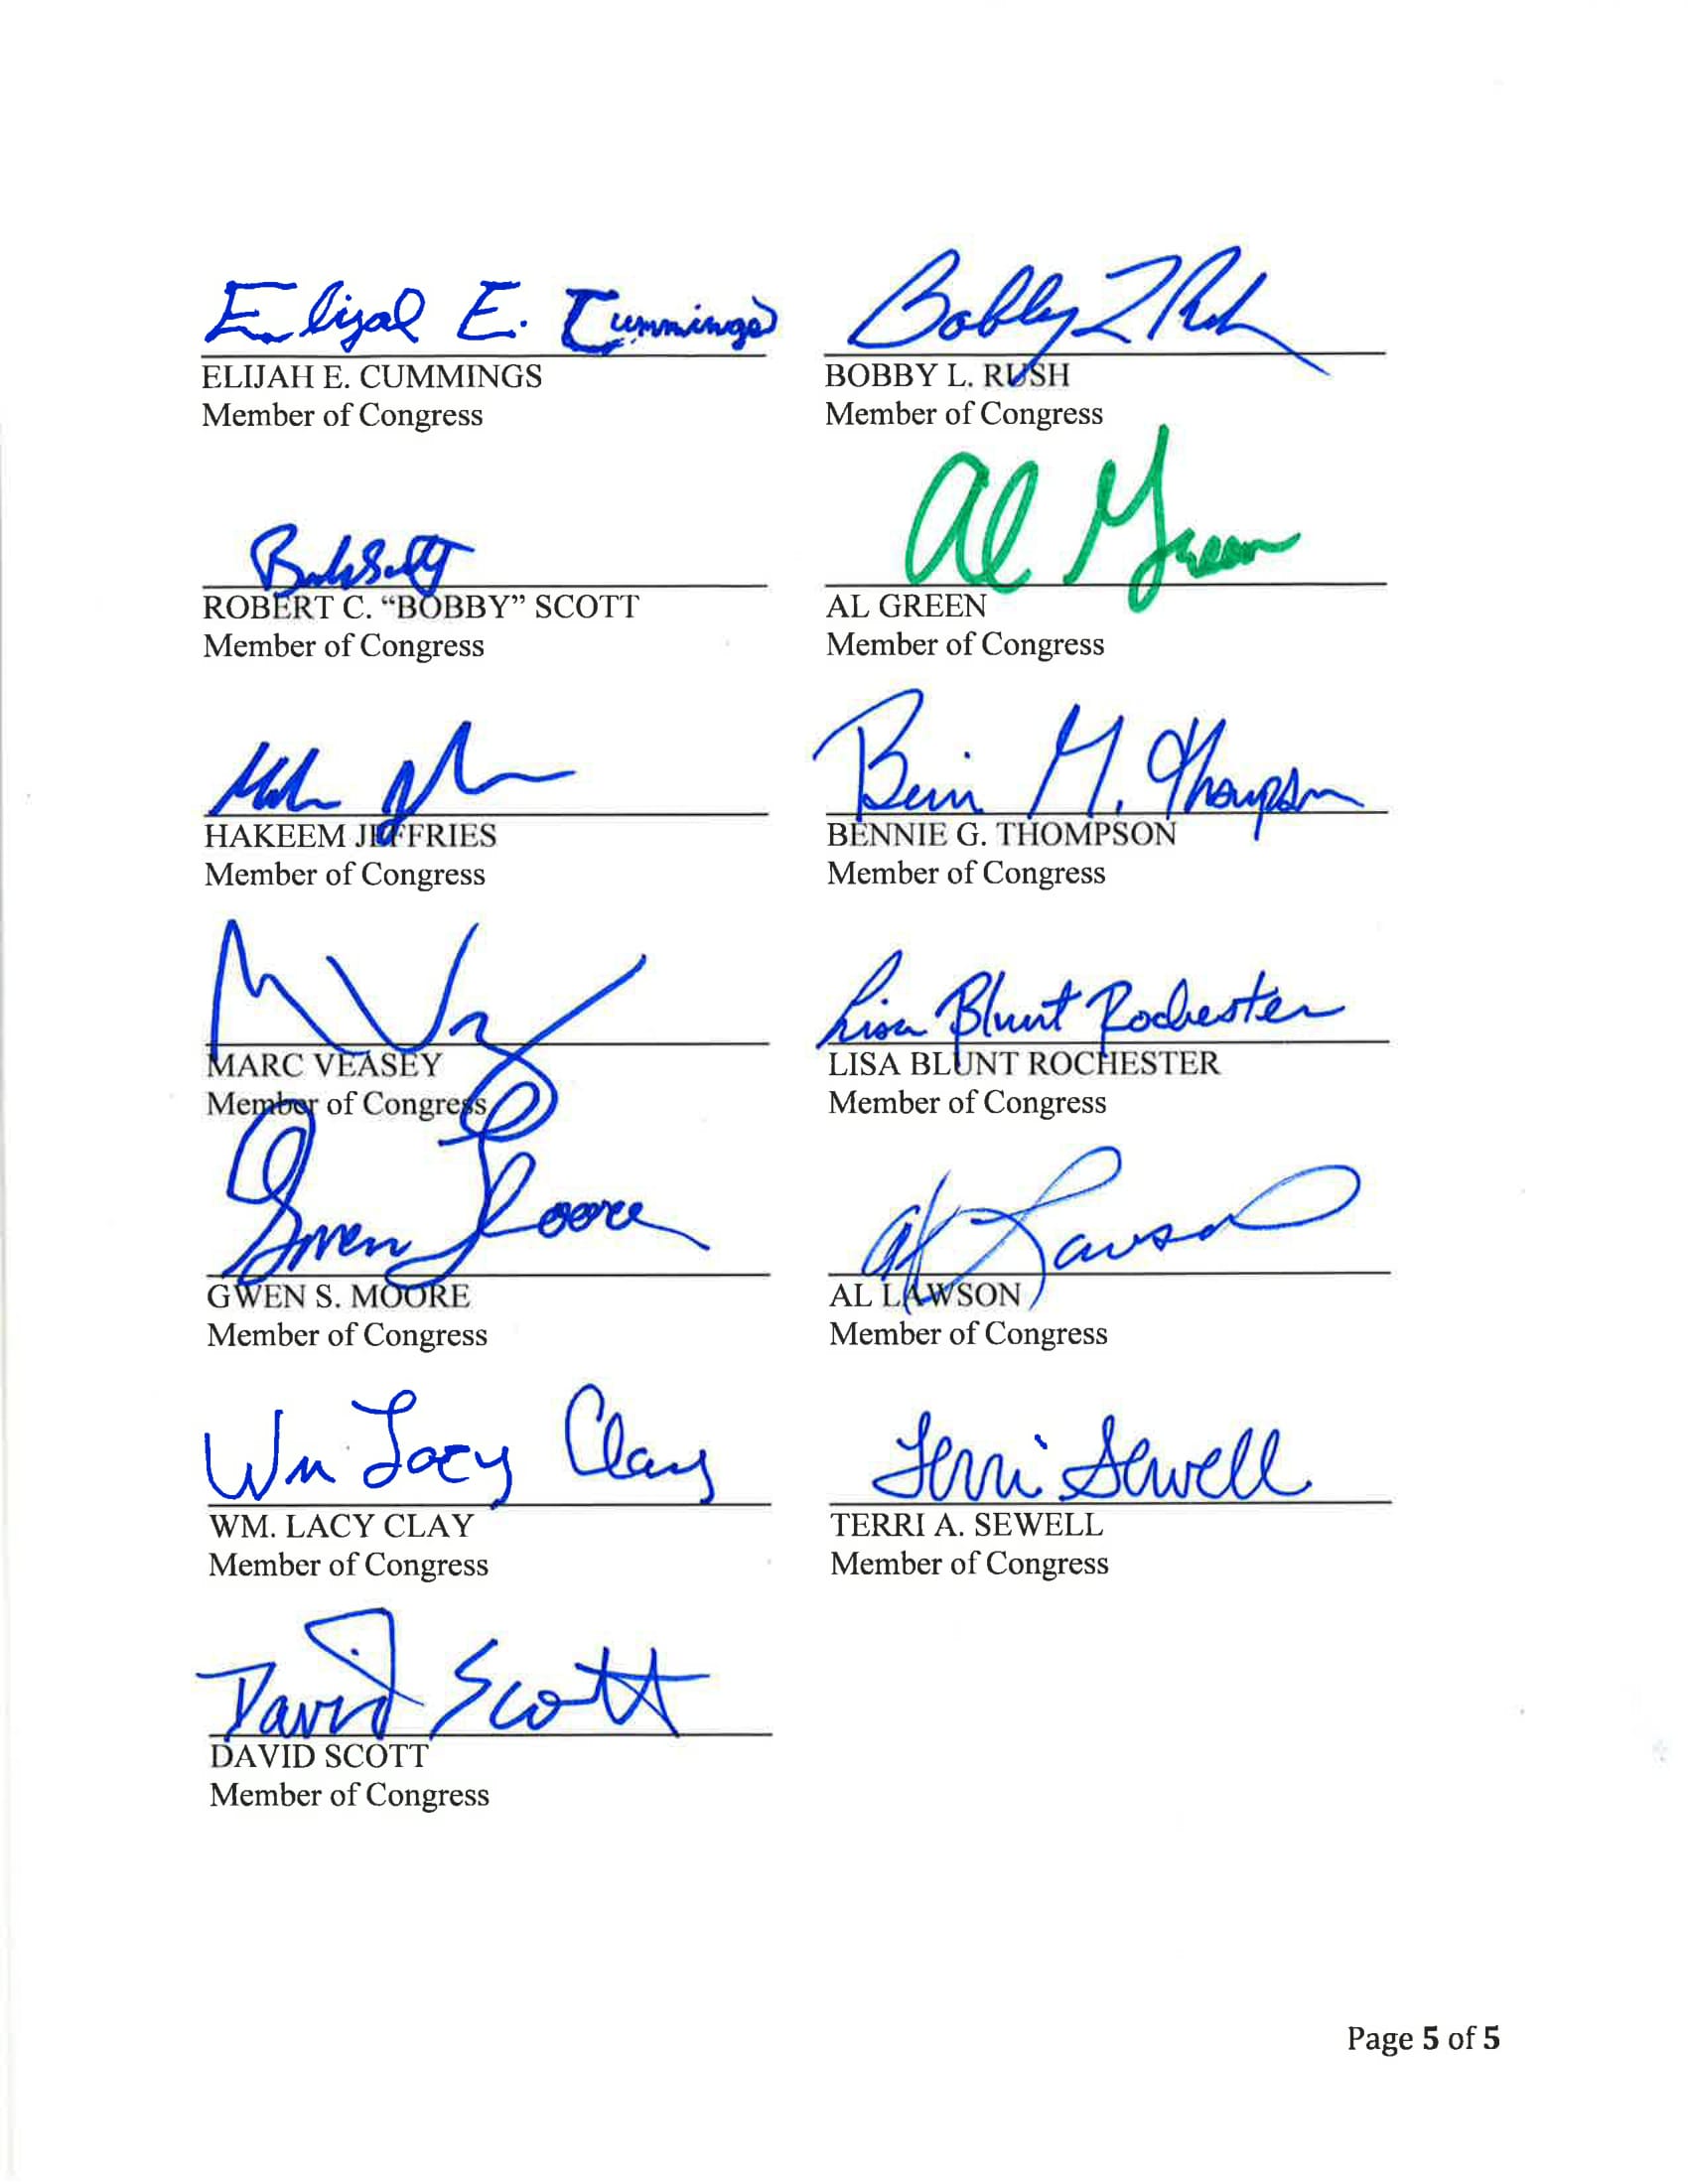 Elijah E. Cummings
ELIJAH E. CUMMINGS
Member of Congress
Bobby L Rush
BOBBY L. RUSH
Member of Congress
Bobby Scott
ROBERT C. “BOBBY” SCOTT
Member of Congress
Al Green
AL GREEN
Member of Congress
HAKEEM JEFFRIES
Member of Congress
Bennie G. Thompson
BENNIE G. THOMPSON
Member of Congress
MARC VEASEY
Member of Congress
Lisa Blunt Rochester
LISA BLUNT ROCHESTER
Member of Congress
Gwen Moore
GWEN S. MOORE
Member of Congress
Al Lawson
AL LAWSON
Member of Congress
Wm Lacy Clay
WM. LACY CLAY
Member of Congress
Terri Sewell
TERRI A. SEWELL
Member of Congress
David Scott
DAVID SCOTT
Member of Congress
Page 5 of 5